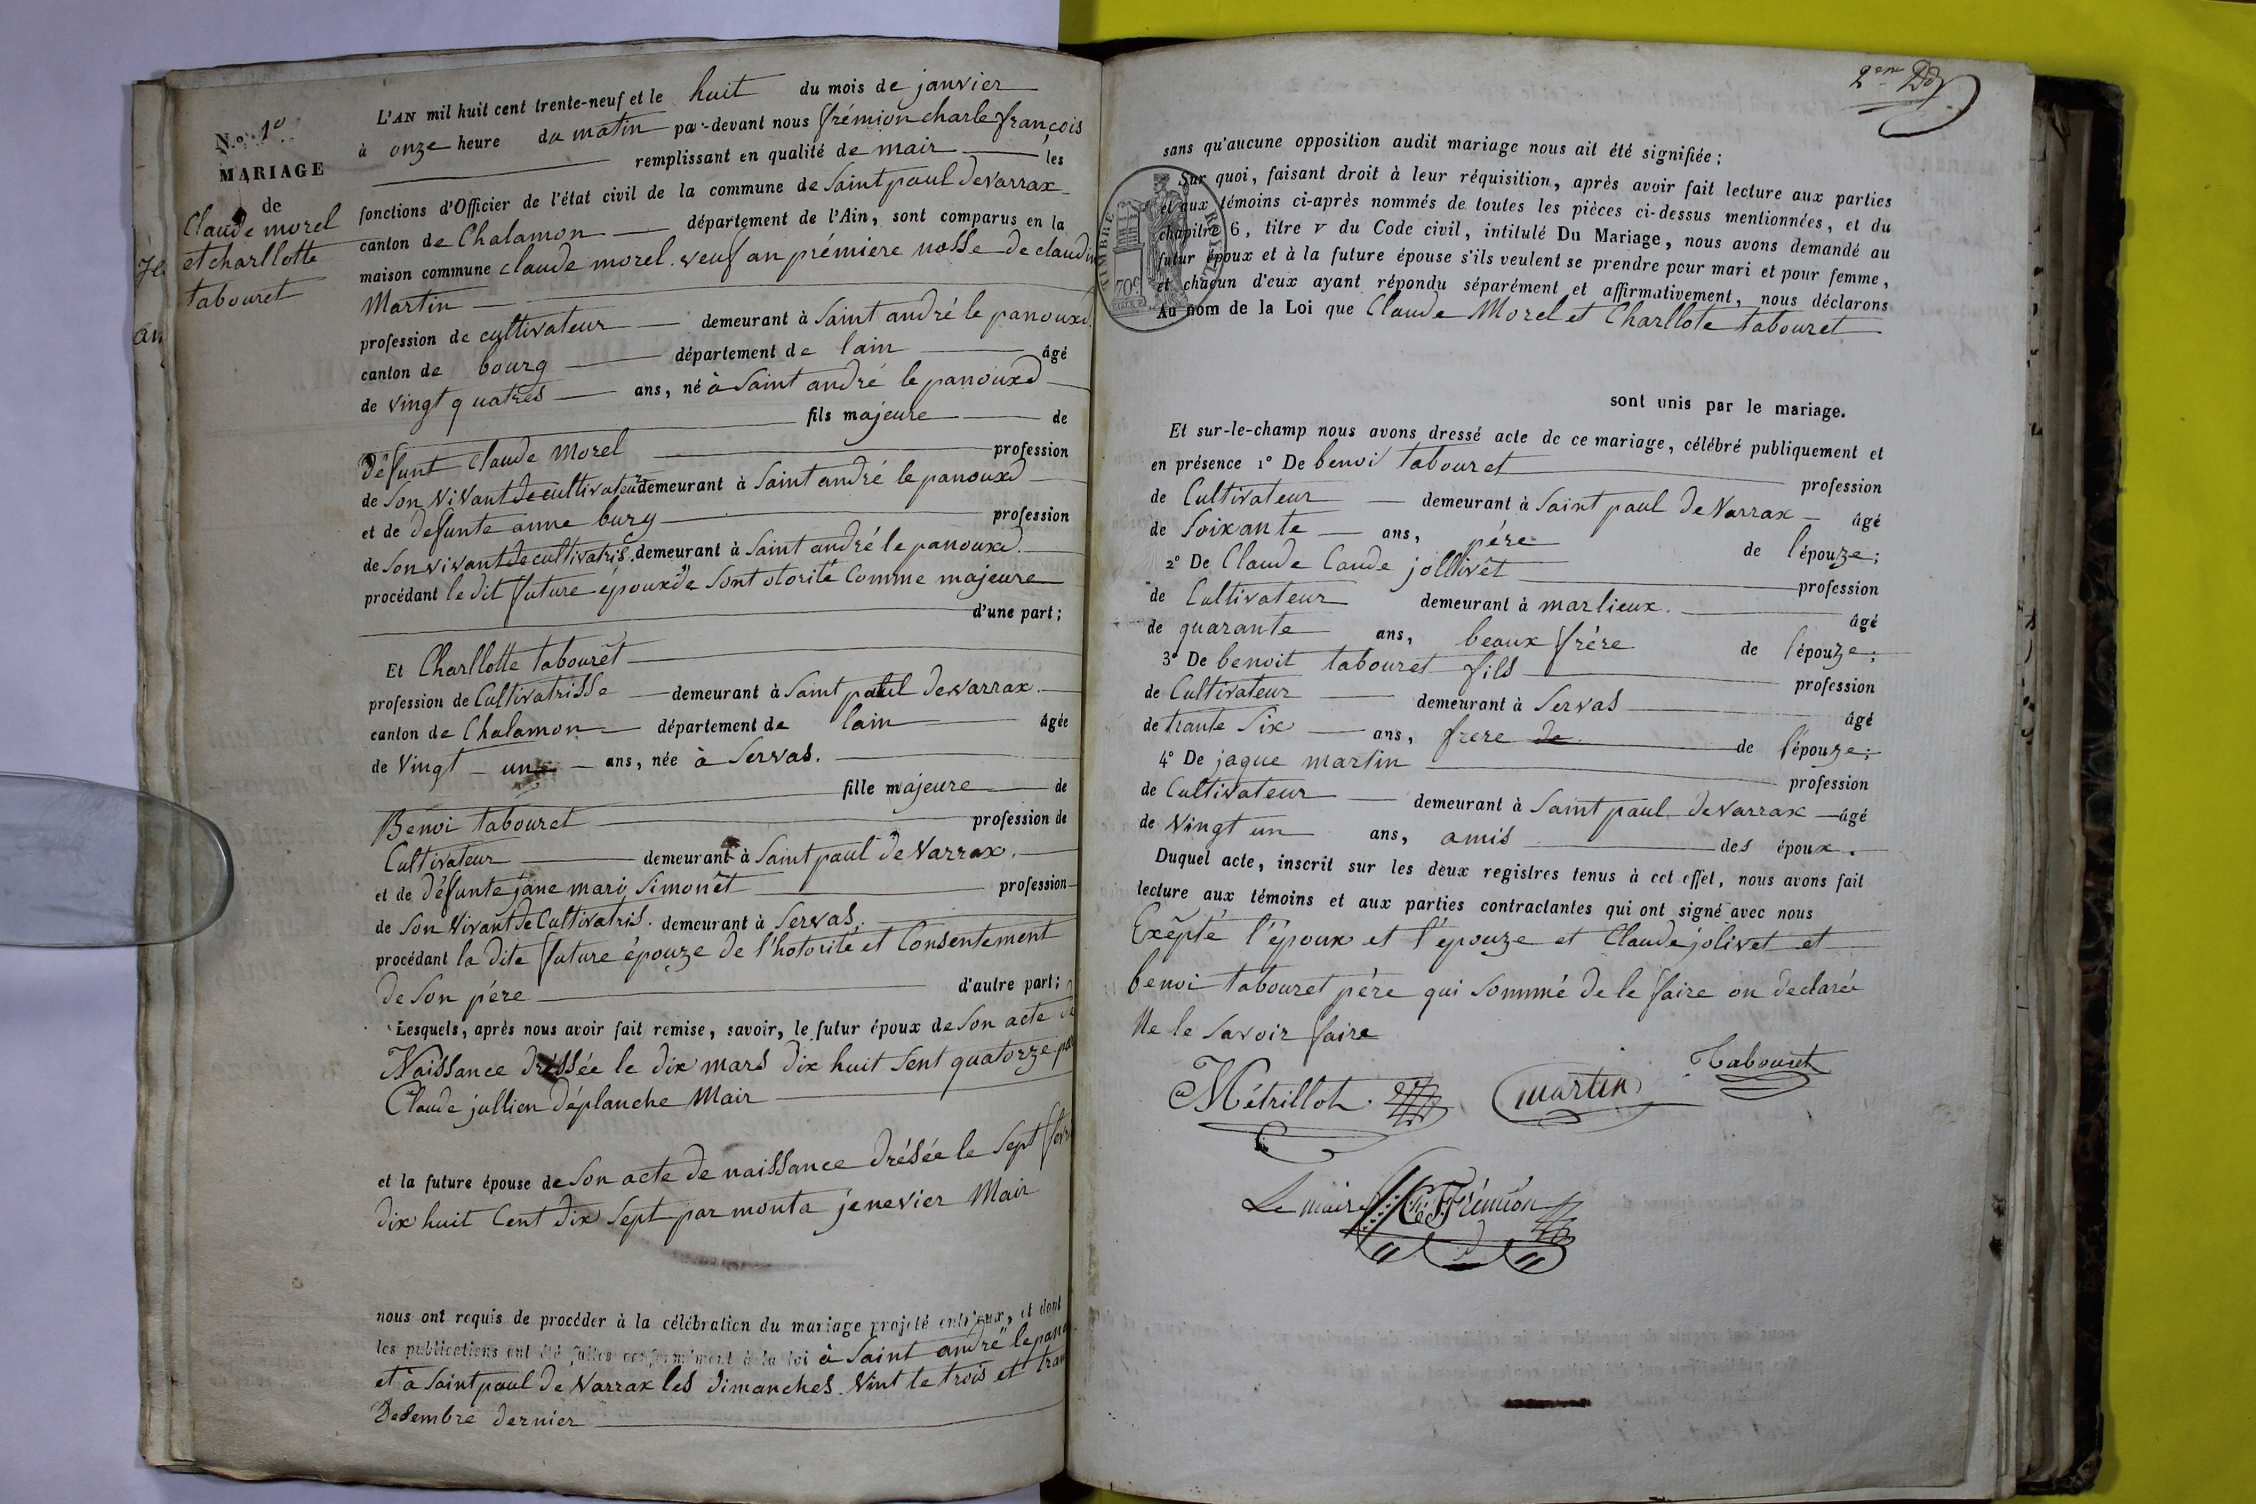 N.º 1º
MARIAGE
de
Claude morel
et charllotte
tabouret
L'AN mil huit cent trente-neuf et le huit du mois de janvier
à onze heure du matin par-devant nous frémion charle françois
remplissant en qualité de mair les
fonctions d'Officier de l'état civil de la commune de Saint paul de Varrax
canton de Chalamon département de l'Ain, sont comparus en la
maison commune claude morel. veuf an prémiere nosse de claudin
Martin
profession de cultivateur demeurant à Saint andré le panouxd
canton de bourg département de lain âgé
de vingt quatres ans, né à Saint andré le panouxd
fils majeure de
défunt Claude Morel profession
de Son vivant de cultivateur demeurant à Saint andré le panouxd
et de defunte anne burg profession
de Son vivant de cultivatris. demeurant à Saint andré le panouxd.
procédant le dit future épouxd de Sont otorité Comme majeure
d'une part;
Et Charllotte tabouret
profession de Cultivatrisse demeurant à Saint paul de varrax.
canton de Chalamon département de lain âgée
de Vingt un ans, née à Servas.
fille majeure de
Benoi tabouret profession de
Cultivateur demeurant à Saint paul de Varrax.
et de défunte jane mari Simonêt profession
de Son Vivant de Cultivatris. demeurant à Servas.
procédant la dite future épouze de l'hotorité et Consentement
de Son pére d'autre part;
Lesquels, après nous avoir fait remise, savoir, le futur époux de Son acte de
Naissance dréssée le dix mars dix huit Sent quatorze par
Claude jullien déplanche Mair
et la future épouse de Son acte de naissance drésée le Sept
dix huit Cent dix Sept par monta jenevier Mair
nous ont requis de procéder à la célébration du mariage projeté entr'eux, et dont
les publications ont été faites conformément à la loi à Saint andré le pan
et à Saint paul de Varrax les dimanches. Vint te trois et tran
Desembre dernier
2em
sans qu'aucune opposition audit mariage nous ait été signifiée;
Sur quoi, faisant droit à leur réquisition, après avoir fait lecture aux parties
et aux témoins ci-après nommés de toutes les pièces ci-dessus mentionnées, et du
chapitre 6, titre V du Code civil, intitulé Du Mariage, nous avons demandé au
futur époux et à la future épouse s'ils veulent se prendre pour mari et pour femme,
et chacun d'eux ayant répondu séparément et affirmativement, nous déclarons
Au nom de la Loi que Claude Morel et Charllote tabouret
TIMBRE ROYAL
70c
sont unis par le mariage.
Et sur-le-champ nous avons dressé acte de ce mariage, célébré publiquement et
en présence 1º De benoi tabouret
profession
de Cultivateur demeurant à Saint paul de Varrax âgé
de Soixante ans, pére de l'épouze;
2º De Claude Caude jollivêt
profession
de Cultivateur demeurant à marlieux.
âgé
de quarante ans, beaux frére de l'épouze;
3º De benoit tabouret fils
profession
de Cultivateur demeurant à Servas
âgé
de trante Six ans, frere de de l'épouze;
4º De jaque martin
profession
de Cultivateur demeurant à Saint paul de Varrax âgé
de Vingt un ans, amis des époux.
Duquel acte, inscrit sur les deux registres tenus à cet effet, nous avons fait
lecture aux témoins et aux parties contractantes qui ont signé avec nous
Exêpté l'époux et l'épouze et Claude jolivet et
benoi tabouret pére qui Sommé de le faire on declaréé
Ne le Savoir faire
Métrillot martin Tabouret
Le mair Ch. Frémion